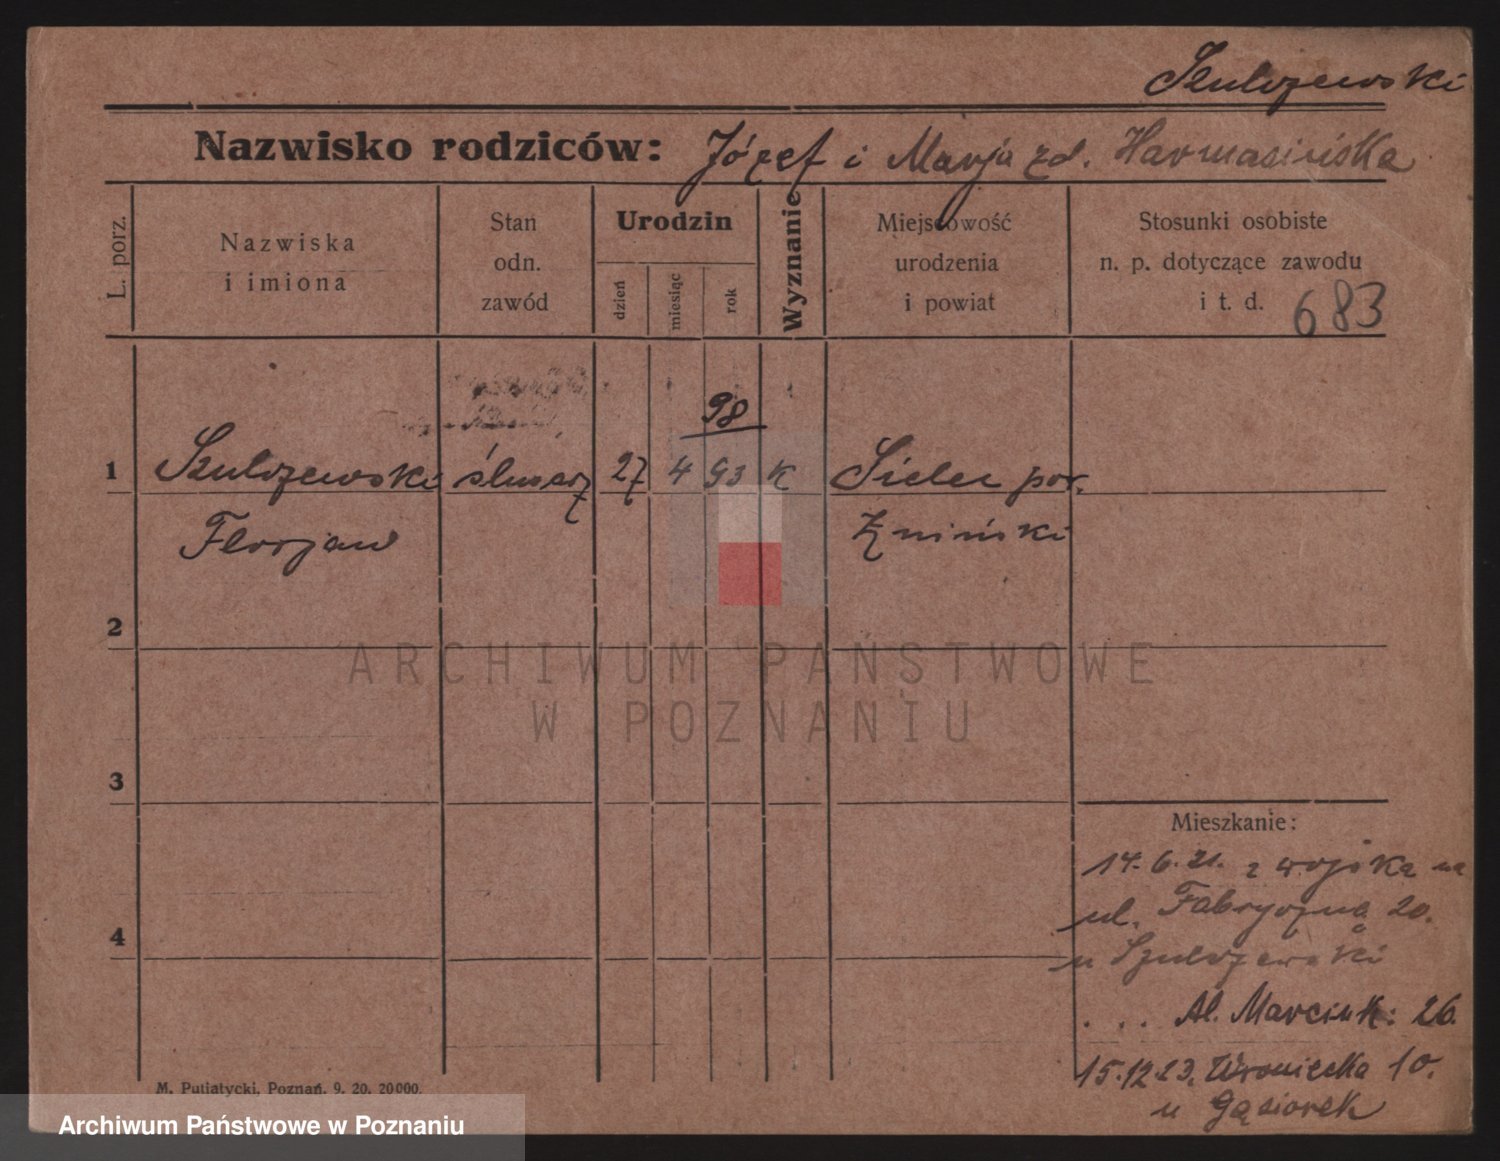 Szulczewski
Nazwisko rodziców: Józef i Marja zd. Harmasińska
L. porz.
Nazwiska
i imiona
Stan
odn.
zawód
Urodzin
dzień
miesiąc
rok
Wyznanie
Miejscowość
urodzenia
i powiat
Stosunki osobiste
n. p. dotyczące zawodu
i t. d. 683
98
1 Szulczewski ślusarz 27 4 93 k Sielec pow.
Florjan Żniński
2
ARCHIWUM PAŃSTWOWE
W POZNANIU
3
Mieszkanie:
14.6.21. z wojska na
ul. Fabryczna 20.
4
u Szulczewski
. . . Al. Marcink: 26.
15.12.23. Wroniecka 10.
u Gąsiorek
M. Putiatycki, Poznań. 9. 20. 20000.
Archiwum Państwowe w Poznaniu